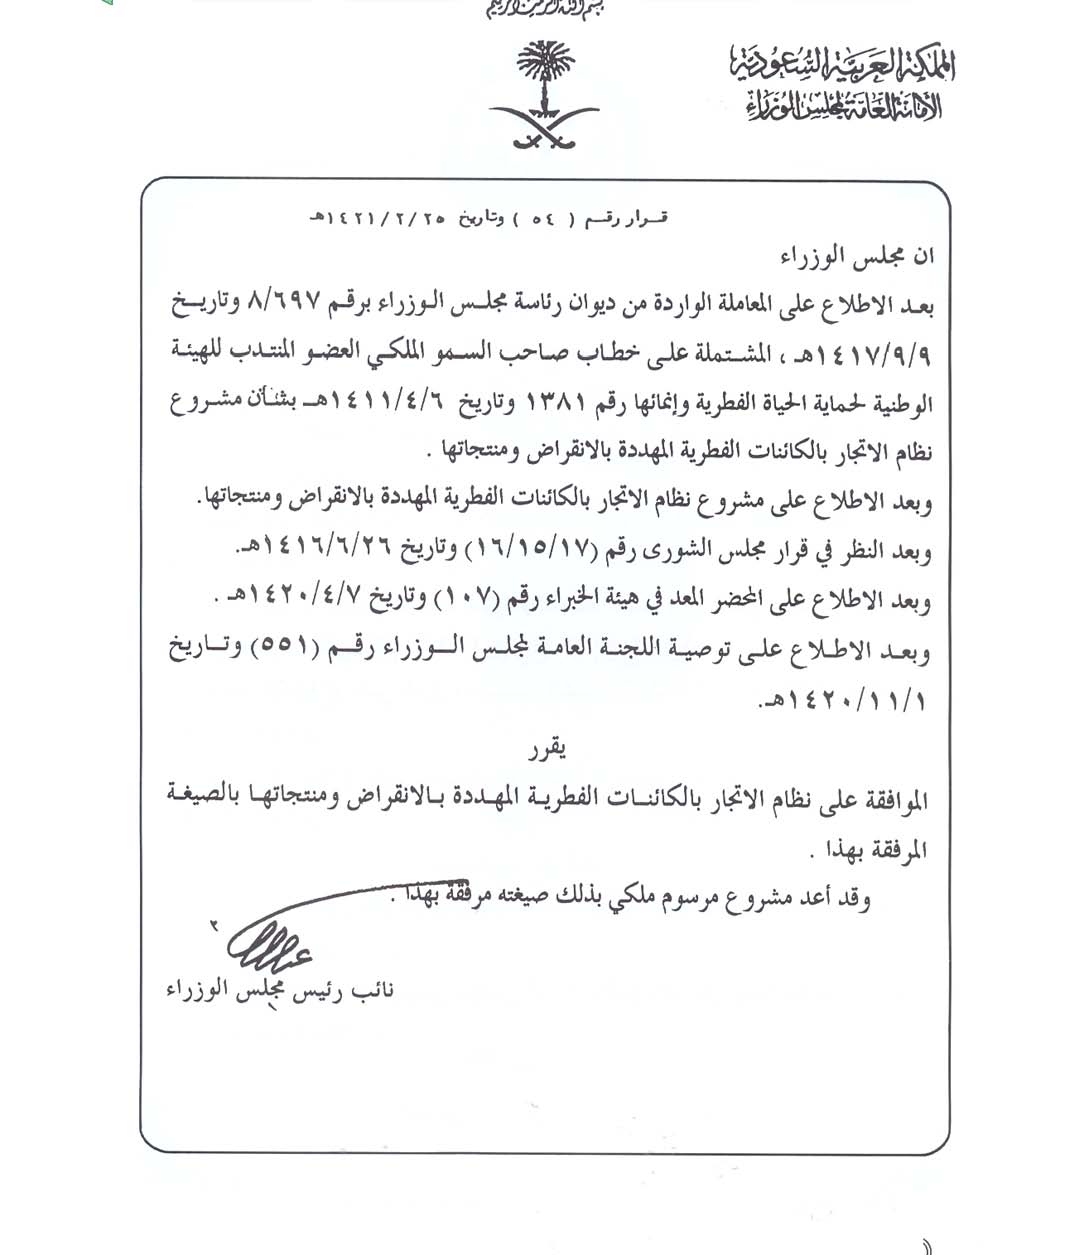 بسم الله الرحمن الرحيم
المملكة العربية السعودية
الأمانة العامة لمجلس الوزراء
قرار رقم ( ٥٤ ) وتاريخ ١٤٢١/٢/٢٥هـ
ان مجلس الوزراء
بعد الاطلاع على المعاملة الواردة من ديوان رئاسة مجلس الوزراء برقم ٨/٦٩٧ وتاريخ
١٤١٧/٩/٩هـ ، المشتملة على خطاب صاحب السمو الملكي العضو المنتدب للهيئة
الوطنية لحماية الحياة الفطرية وإنمائها رقم ١٣٨١ وتاريخ ١٤١١/٤/٦هـ بشأن مشروع
نظام الاتجار بالكائنات الفطرية المهددة بالانقراض ومنتجاتها .
وبعد الاطلاع على مشروع نظام الاتجار بالكائنات الفطرية المهددة بالانقراض ومنتجاتها.
وبعد النظر في قرار مجلس الشورى رقم (١٦/١٥/١٧) وتاريخ ١٤١٦/٦/٢٦هـ.
وبعد الاطلاع على المحضر المعد في هيئة الخبراء رقم (١٠٧) وتاريخ ١٤٢٠/٤/٧هـ .
وبعد الاطلاع على توصية اللجنة العامة لمجلس الوزراء رقم (٥٥١) وتاريخ
١٤٢٠/١١/١هـ.
يقرر
الموافقة على نظام الاتجار بالكائنات الفطرية المهددة بالانقراض ومنتجاتها بالصيغة
المرفقة بهذا .
وقد أعد مشروع مرسوم ملكي بذلك صيغته مرفقة بهذا .
نائب رئيس مجلس الوزراء